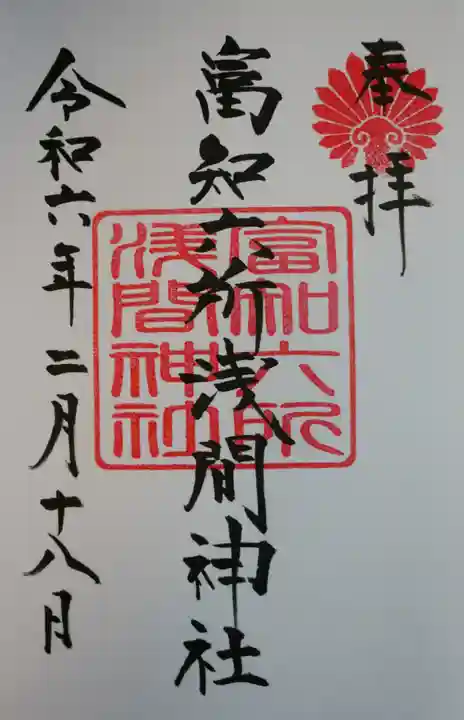 奉拝
富知六所浅間神社
令和六年二月十八日
富知六所
浅間神社